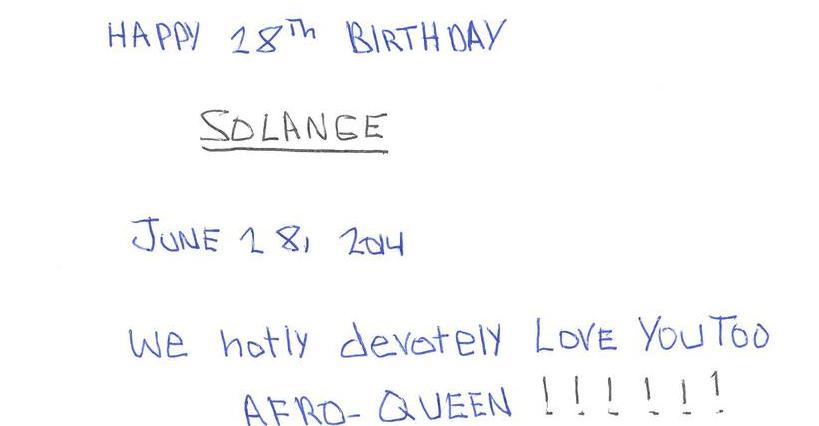 HAPPY 28Th BIRTHDAY
SOLANGE
JUNE 28, 2014
we hotly devotely LOVE YOU TOO
AFRO-QUEEN !!!!!!